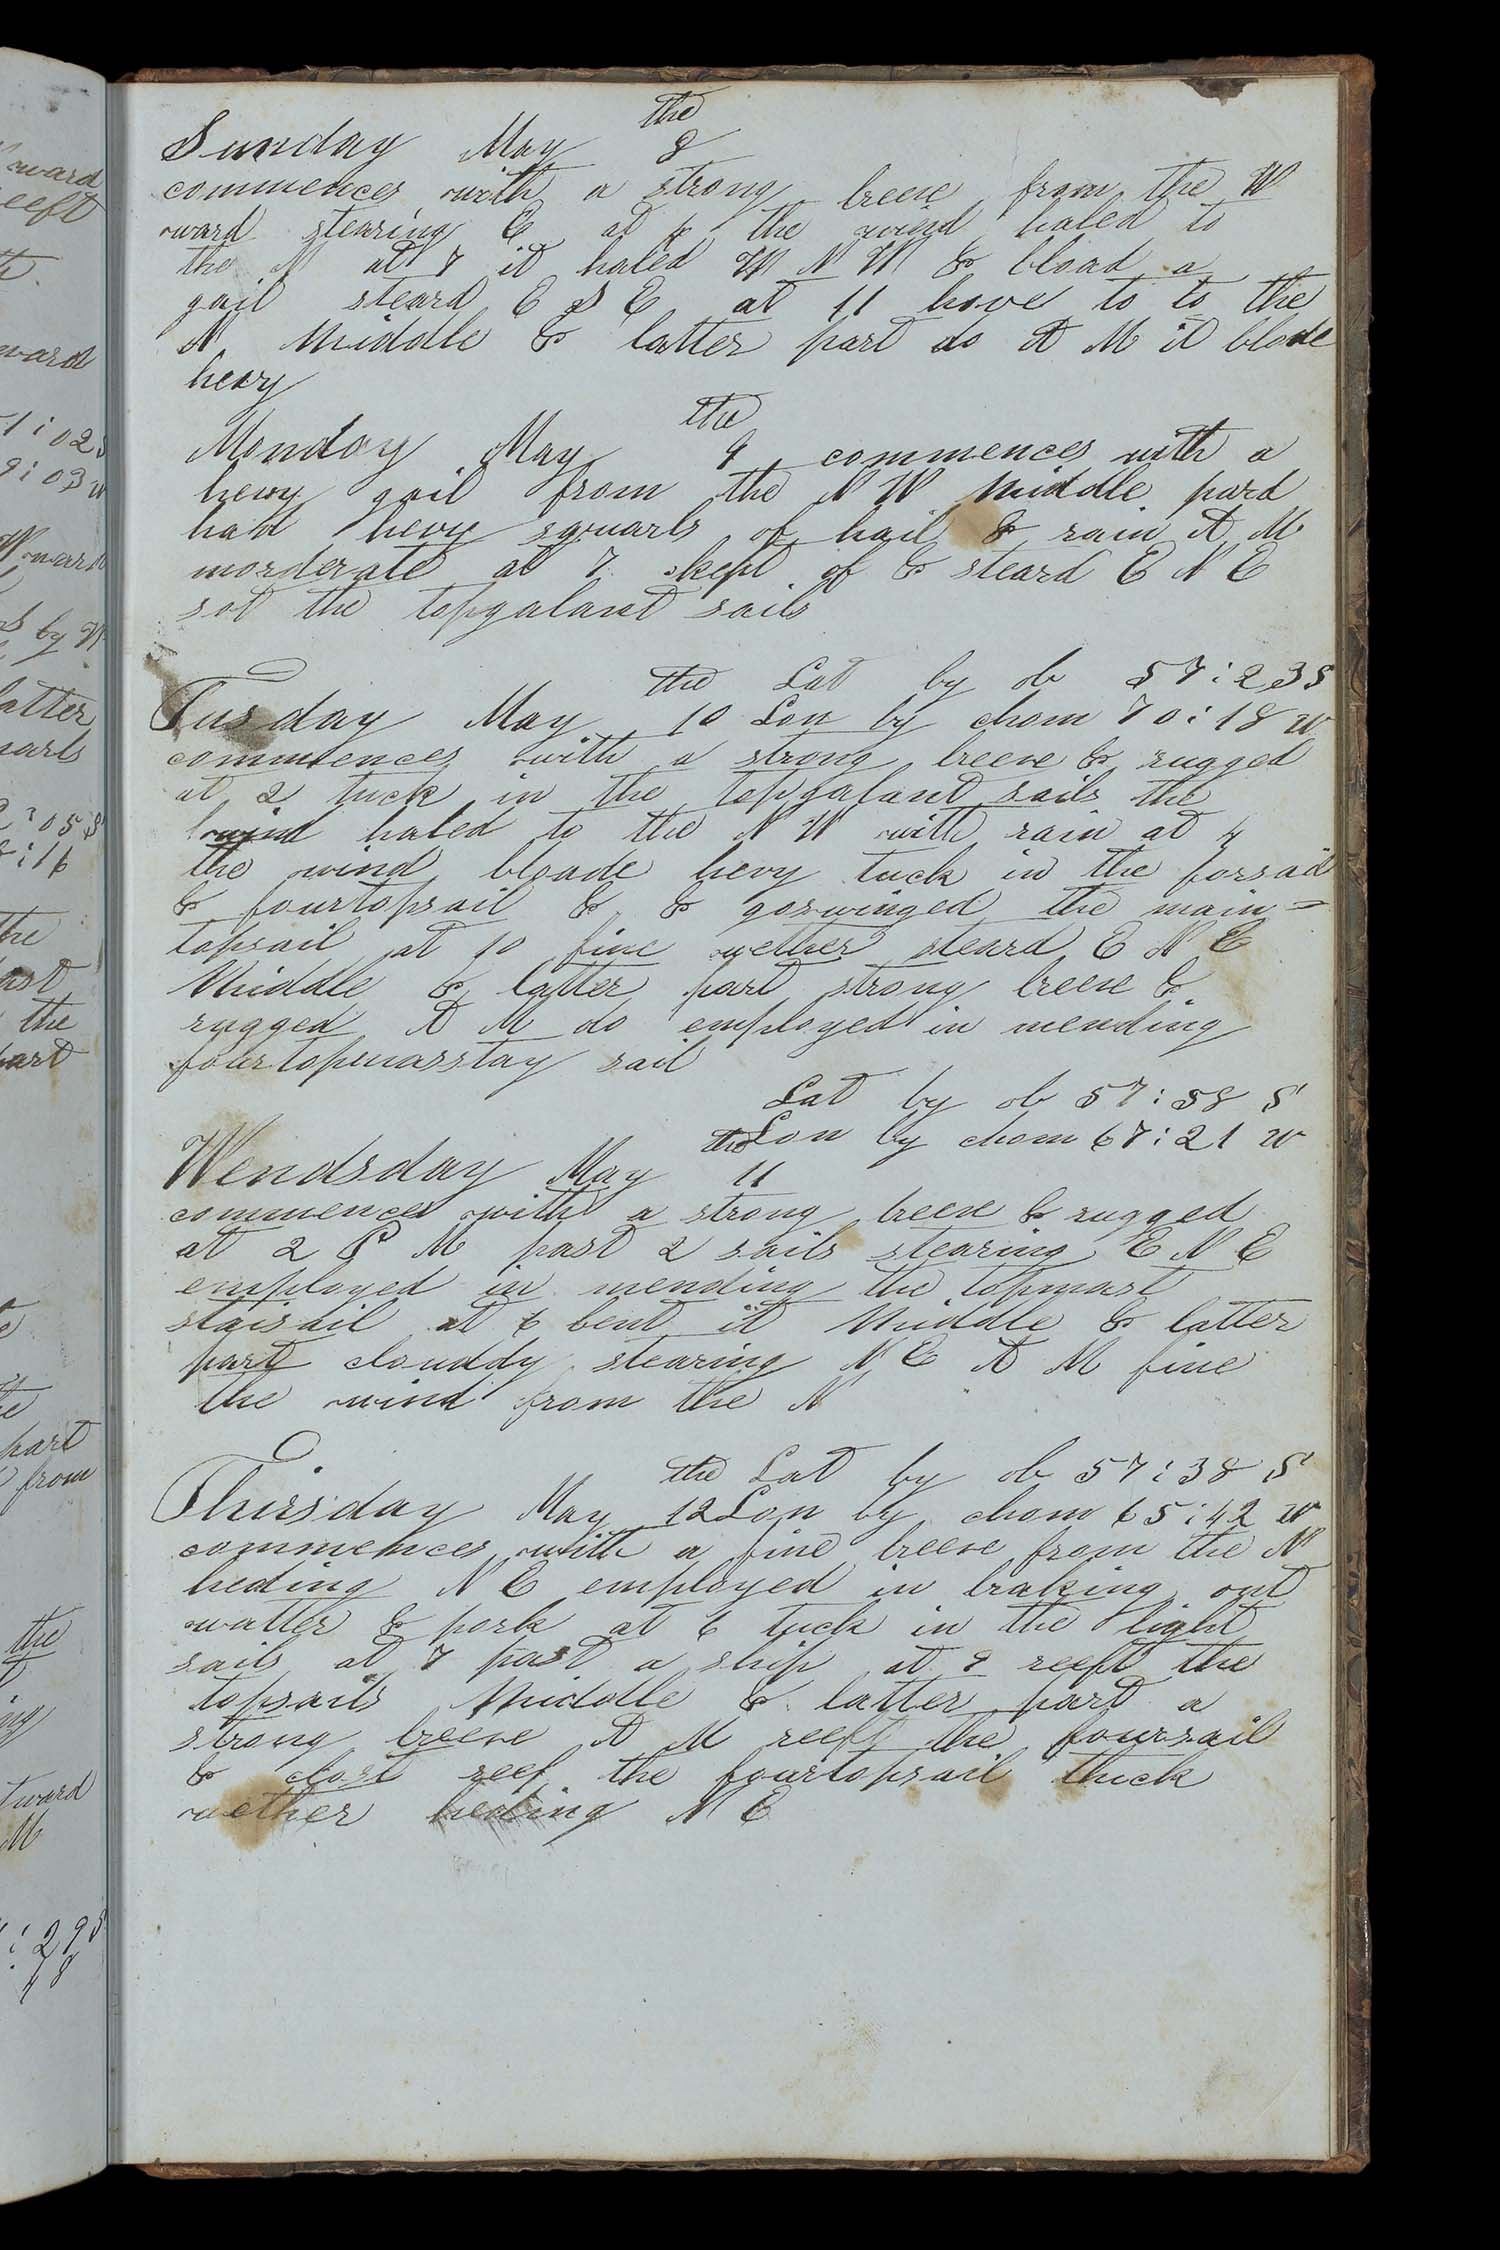 ward
eeft
ward
1:02S
9:03W
Wward
S by W
latter
uarls
2:05S
8:16
the
ast
the
part
part
from
the
ing
tward
M
:29S
:48
Sunday May the 8
commences with a strong breese from the W
ward stearing E at 4 the wind haled to
the N at 7 it haled W N W & bload a
gail steard E S E at 11 hove to to the
N Middle & latter part do A M it blode
hevy
Monday May the 9 commences with a
hevy gail from the N W Middle pard
had hevy squarls of hail & rain A M
morderate at 7 kept of & steard E N E
sot the topgalant sails
Lat by ob 57:23S
Tusday May the 10 Lon by chom 70:18 W
commences with a strong breese & rugged
at 2 tuck in the topgalant sails the
wind haled to the N W with rain at 4
the wind bloade hevy tuck in the forsail
& fourtopsail & & goswinged the main=
topsail at 10 fine wether steard E N E
Middle & latter part strong breese &
rugged A M do employed in mending
fourtopmasstay sail
Lat by ob 57:58 S
Lon by chom 67:21 W
Wendsday May the 11
commences with a strong breese & rugged
at 2 P M past 2 sails stearing E N E
employed in mending the topmast
staisail at 6 bent it Middle & latter
part clouddy stearing N E A M fine
the wind from the N
Lat by ob 57:38 S
Thursday May the 12 Lon by chom 65:42 W
commences with a fine breese from the N
heding N E employed in braking out
watter & pork at 6 tuck in the light
sails at 7 past a ship at 8 reeft the
topsails Middle & latter part a
strong breese A M reeft the foursail
& clost reef the fourtopsail thick
wether heding N E